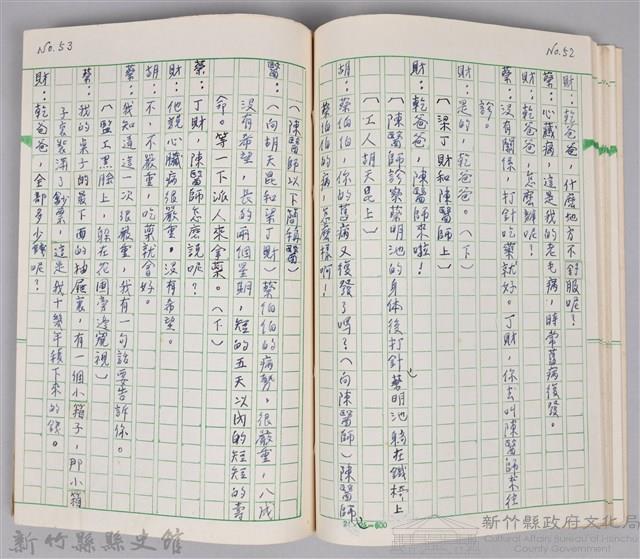 No.52
財：乾爸爸，什麼地方不舒服呢？
蔡：心臟病，這是我的老毛病，時常舊病復發。
財：乾爸爸，怎麼辦呢？
蔡：沒有關係，打針吃藥就好。丁財，你去叫陳醫師來往
診。
財：是的，乾爸爸。（下）
（梁丁財和陳醫師上）
財：乾爸爸，陳醫師來啦！
（陳醫師診察蔡明池的身体後打針，蔡明池躺在鐵椅上
（工人胡天昆上）
胡：蔡伯伯，你的舊病又復發了嗎？（向陳醫師）陳醫師
蔡伯伯的病，怎麼樣啊！
No.53
（陳醫師以下簡稱醫）
醫：（向胡天昆和梁丁財）蔡伯伯的病勢，很嚴重，八成
沒有希望，長的兩個星期，短的五天以內的短短的壽
命。等一下派人來拿藥。（下）
蔡：丁財，陳醫師怎麼說呢？
財：他說心臟病很嚴重。沒有希望。
胡：不，不嚴重，吃藥就會好。
蔡：我知道這一次很嚴重，我有一句話要告訴你。
（監工黑臉上，躲在花園旁邊窺視）
蔡：我的桌子的最下面的抽屜裏，有一個小箱子，那小箱
子裝滿了鈔票，這是我十幾年積下來的錢。
財：乾爸爸，全部多少錢呢？
新竹縣縣史館
新竹縣政府文化局
Cultural Affairs Bureau of Hsinchu
County Government